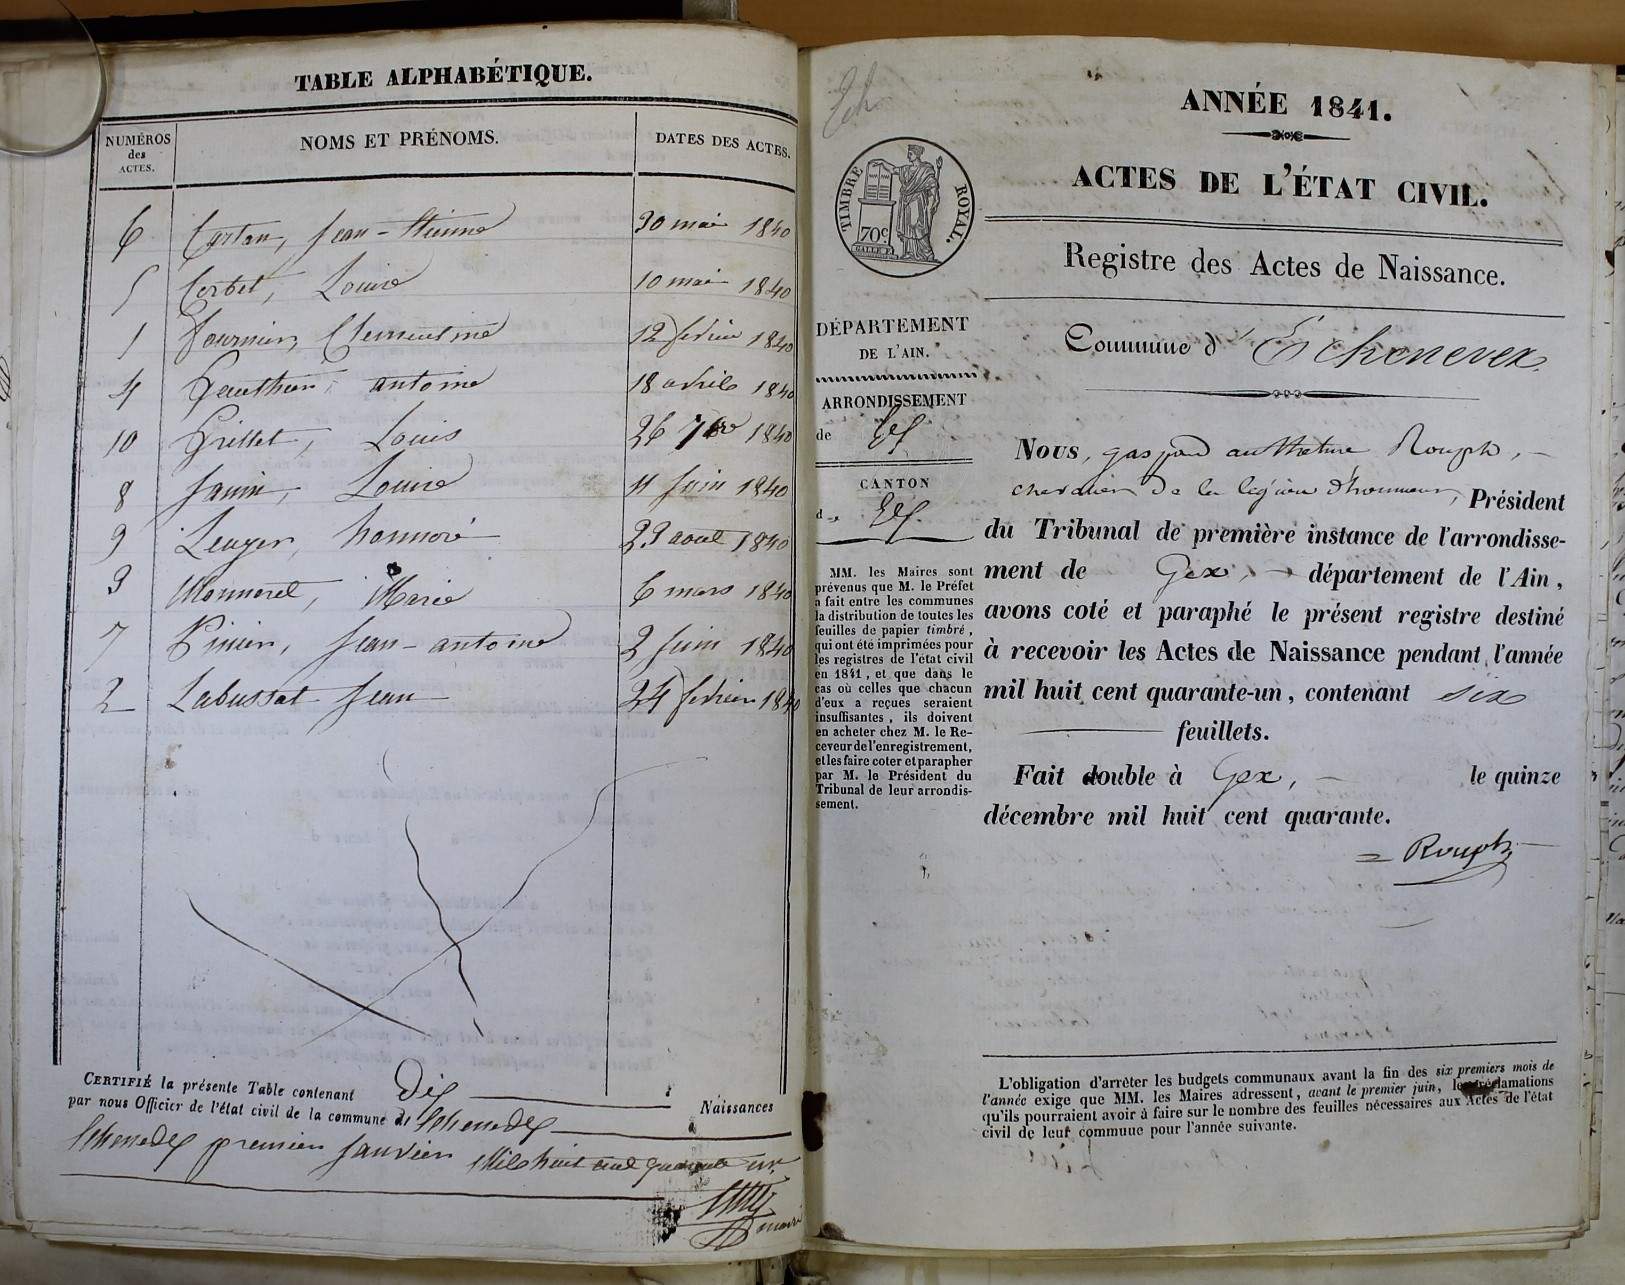 TABLE ALPHABÉTIQUE.
NUMÉROS des ACTES. NOMS ET PRÉNOMS. DATES DES ACTES.
6 Carton, Jean-Etienne 30 mai 1840
5 Corbet, Louise 10 mai 1840
1 Fournier, Clementine 12 fevrier 1840
4 Gauthier, antoine 18 avril 1840
10 Grillet, Louis 26 7bre 1840
8 Janin, Louise 11 juin 1840
9 Leuger, honnoré 23 aout 1840
3 Monneret, Marie 6 mars 1840
7 Pinier, Jean-antoine 2 juin 1840
2 Labussat Jean 24 fevrier 1840
CERTIFIÉ la présente Table contenant Dix Naissances
par nous Officier de l'état civil de la commune de
premier janvier mil huit cent quarante un
Ech
ANNÉE 1841.
ACTES DE L'ÉTAT CIVIL.
TIMBRE ROYAL.
70c
Registre des Actes de Naissance.
Commune d'Echenevex
DÉPARTEMENT
DE L'AIN.
ARRONDISSEMENT
de Gex
CANTON
de Gex
MM. les Maires sont
prévenus que M. le Préfet
a fait entre les communes
la distribution de toutes les
feuilles de papier timbré,
qui ont été imprimées pour
les registres de l'état civil
en 1841, et que dans le
cas où celles que chacun
d'eux a reçues seraient
insuffisantes, ils doivent
en acheter chez M. le Re-
ceveur de l'enregistrement,
et les faire coter et parapher
par M. le Président du
Tribunal de leur arrondis-
sement.
Nous, gaspard anthelme Rouph,
chevalier de la légion d'honneur, Président
du Tribunal de première instance de l'arrondisse-
ment de Gex, département de l'Ain,
avons coté et paraphé le présent registre destiné
à recevoir les Actes de Naissance pendant l'année
mil huit cent quarante-un, contenant six
feuillets.
Fait double à Gex, le quinze
décembre mil huit cent quarante.
Rouph
L'obligation d'arrêter les budgets communaux avant la fin des six premiers mois de
l'année exige que MM. les Maires adressent, avant le premier juin, les réclamations
qu'ils pourraient avoir à faire sur le nombre des feuilles nécessaires aux Actes de l'état
civil de leur commune pour l'année suivante.